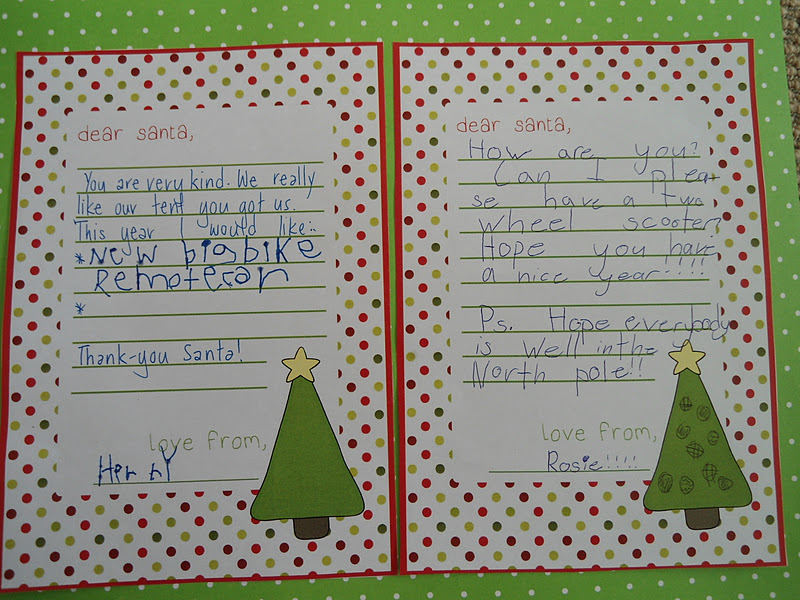 dear santa,
You are very kind. We really
like our tent you got us.
This year I would like:-
*New big bike
Remotecar
*
Thank-you Santa!
love from,
Henry
dear santa,
How are you?
Can I plea
se have a two
wheel scooter?
Hope you have
a nice year....!!!!
P.s. Hope everybody
is well in the
North pole!!
love from,
Rosie!!!!